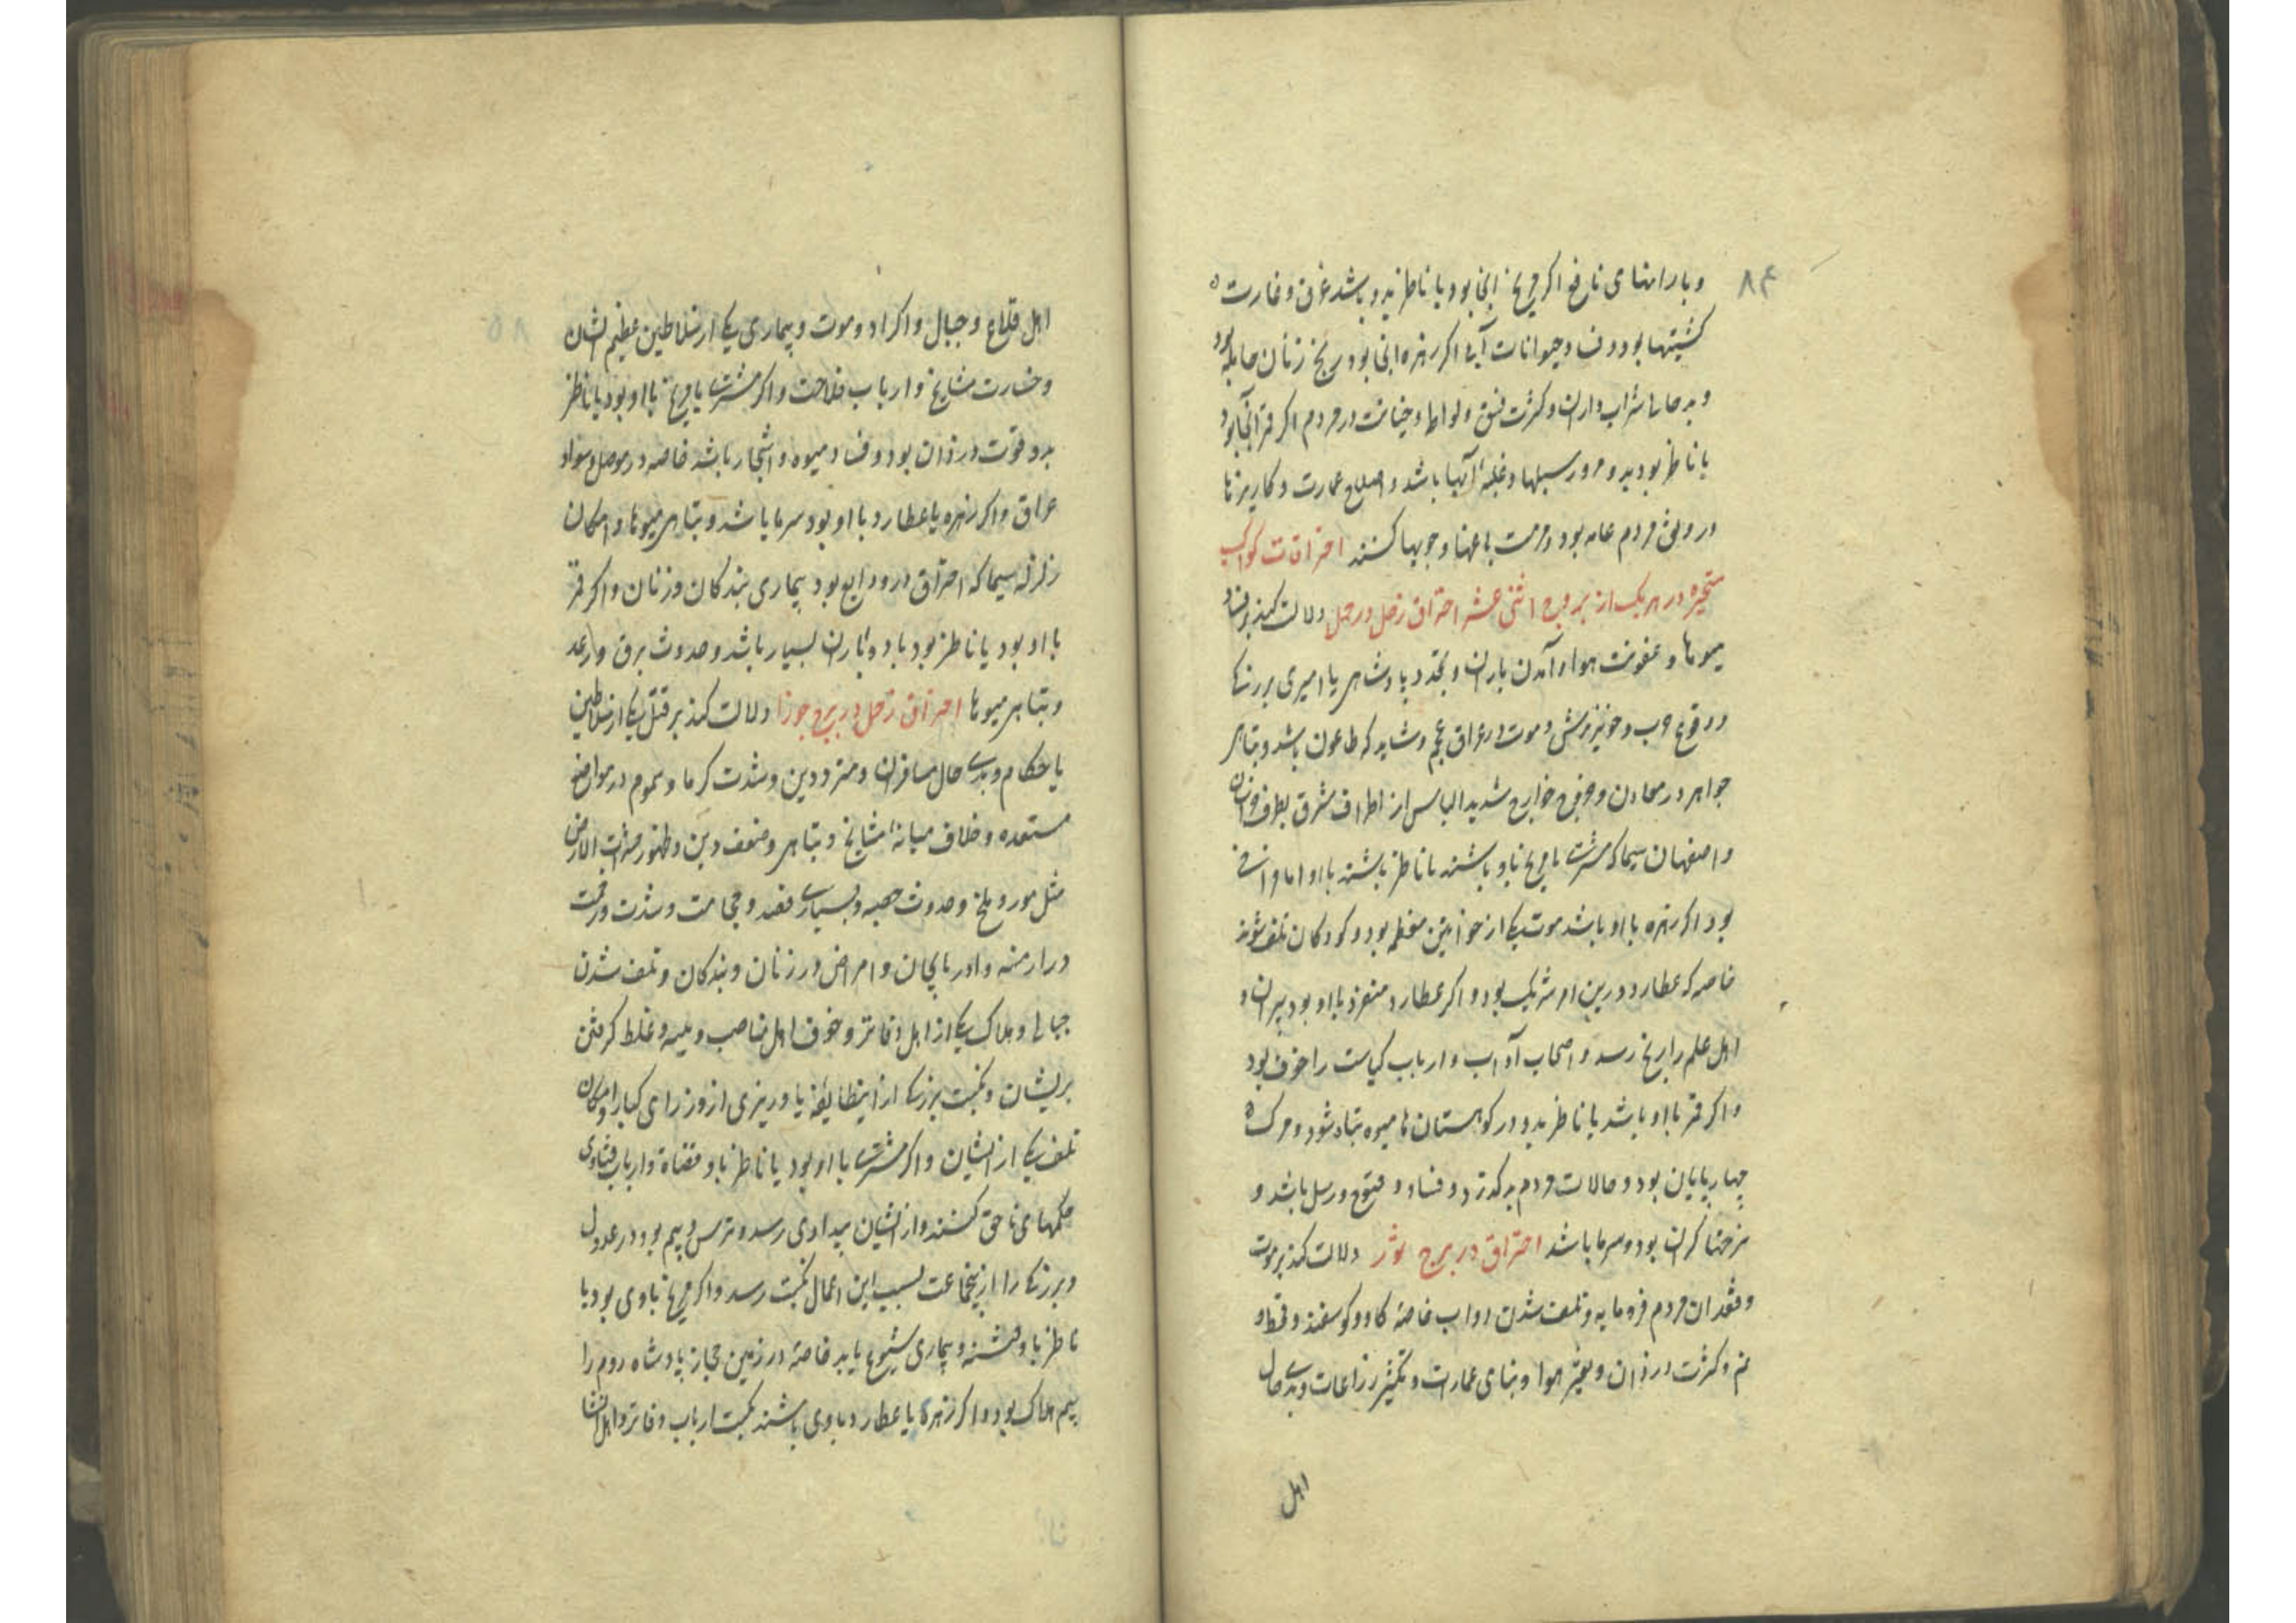 ۸۴
وبارانهای نافع اکر مریخ انجا بود یا ناظر بدو باشد غرق و غارت
کشتیها بود و فساد حیوانات آبی اکر زهره انجا بود رنج زنان حامله بود
و بدحالی شراب داران و کثرت فسق و لواط و خیانت در مردم اکر قمر آنجا بود
یا ناظر بود بدو مرور سیلها و غلبهٔ آبها باشد و اصلاح عمارت و کاریزها
در رونق مردم عامه بود و مرمت باغها و جویها کنند احتراقات کواکب
متحیره در هر یک از بروج اثنی عشر احتراق زحل در حمل دلالت کند بر فساد
میوها و عفونت هوا و آمدن باران و تجدد پادشاهی یا امیری بزرک
و وقوع حرب و خونریزش و موت در عراق عجم و شاید که طاعون باشد و تباهی
جواهر در معادن و خروج خوارج شدید الباس از اطراف مشرق بطرف خراسان
و اصفهان سیما که مشتری یا مریخ باو باشند یا ناظر باشند باو اما
بود اکر زهره با او باشد موت یکی از خواتین معظمه بود و کودکان تلف شوند
خاصه که عطارد درین امر شریک بود و اکر عطارد منفرد با او بود پیران و
اهل علم را رنج رسد و اصحاب آداب و ارباب کیاست را خوف بود
و اکر قمر با او باشد یا ناظر بدو در کوهستان ها میوه تباه شود و مرک
چهارپایان بود و حالات مردم بد کذرد و فساد و فتوح و رسل باشد و
نرخها کران بود و سرما باشد احتراق در برج ثور دلالت کند بر موت
و فقدان مردم فرومایه و تلف شدن دواب خاصه کاو و کوسفند و قحط و
غم و کثرت دزدان و تغیر هوا و بنای عمارات و تکثیر زراعات و بدی حال
اهل
۸۵
اهل قلاع و جبال و اکراد و موت و بیماری یکی از سلاطین عظیم الشان
و خسارت مشایخ و ارباب فلاحت و اکر مشتری یا مریخ با او بود یا ناظر
بدو قوت دزدان بود و فساد میوه و اشجار باشد خاصه در موصل و سواد
عراق و اکر زهره یا عطارد با او بود سرما باشد و تباهی میوها و امکان
زلزله سیما که احتراق در وبود بیماری بندکان و زنان و اکر قمر
با او بود یا ناظر بود باد و باران بسیار باشد و حدوث برق و رعد
و تباهی میوها احتراق زحل در برج جوزا دلالت کند بر قتل یکی از سلاطین
یا حکام و بدی حال مسافران و مترددین و شدت کرما و سموم در مواضع
مستعده و خلاف میانهٔ مشایخ و تباهی و ضعف دین و ظهور حشرات الارض
مثل مور و ملخ و حدوث حصبه و بسیاری فصد و حجامت و شدت و زحمت
در ارمنه و اذربایجان و امراض در زنان و بندکان و تلف شدن
حبالی و هلاک یکی از اهل دفاتر و خوف اهل مناصب و غلط کرفتن
بریشان و نکبت بزرکی از اینطایفه یا وزیری از وزرای کبار و امکان
تلف یکی از ایشان و اکر مشتری با او بود یا ناظر باو قضاة و ارباب فتاوی
حکمهای ناحق کنند و از ایشان بیدادی رسد و ترس و بیم بود در عدول
و بزرکی را از اینجماعت بسبب این اعمال نکبت رسد و اکر مریخ باوی بود یا
ناظر باو فتنه و بیماری شیوع یابد خاصه در زمین حجاز پادشاه روم را
بیم هلاک بود و اکر زهره یا عطارد باوی باشند نکبت ارباب دفاتر و اهل انشا